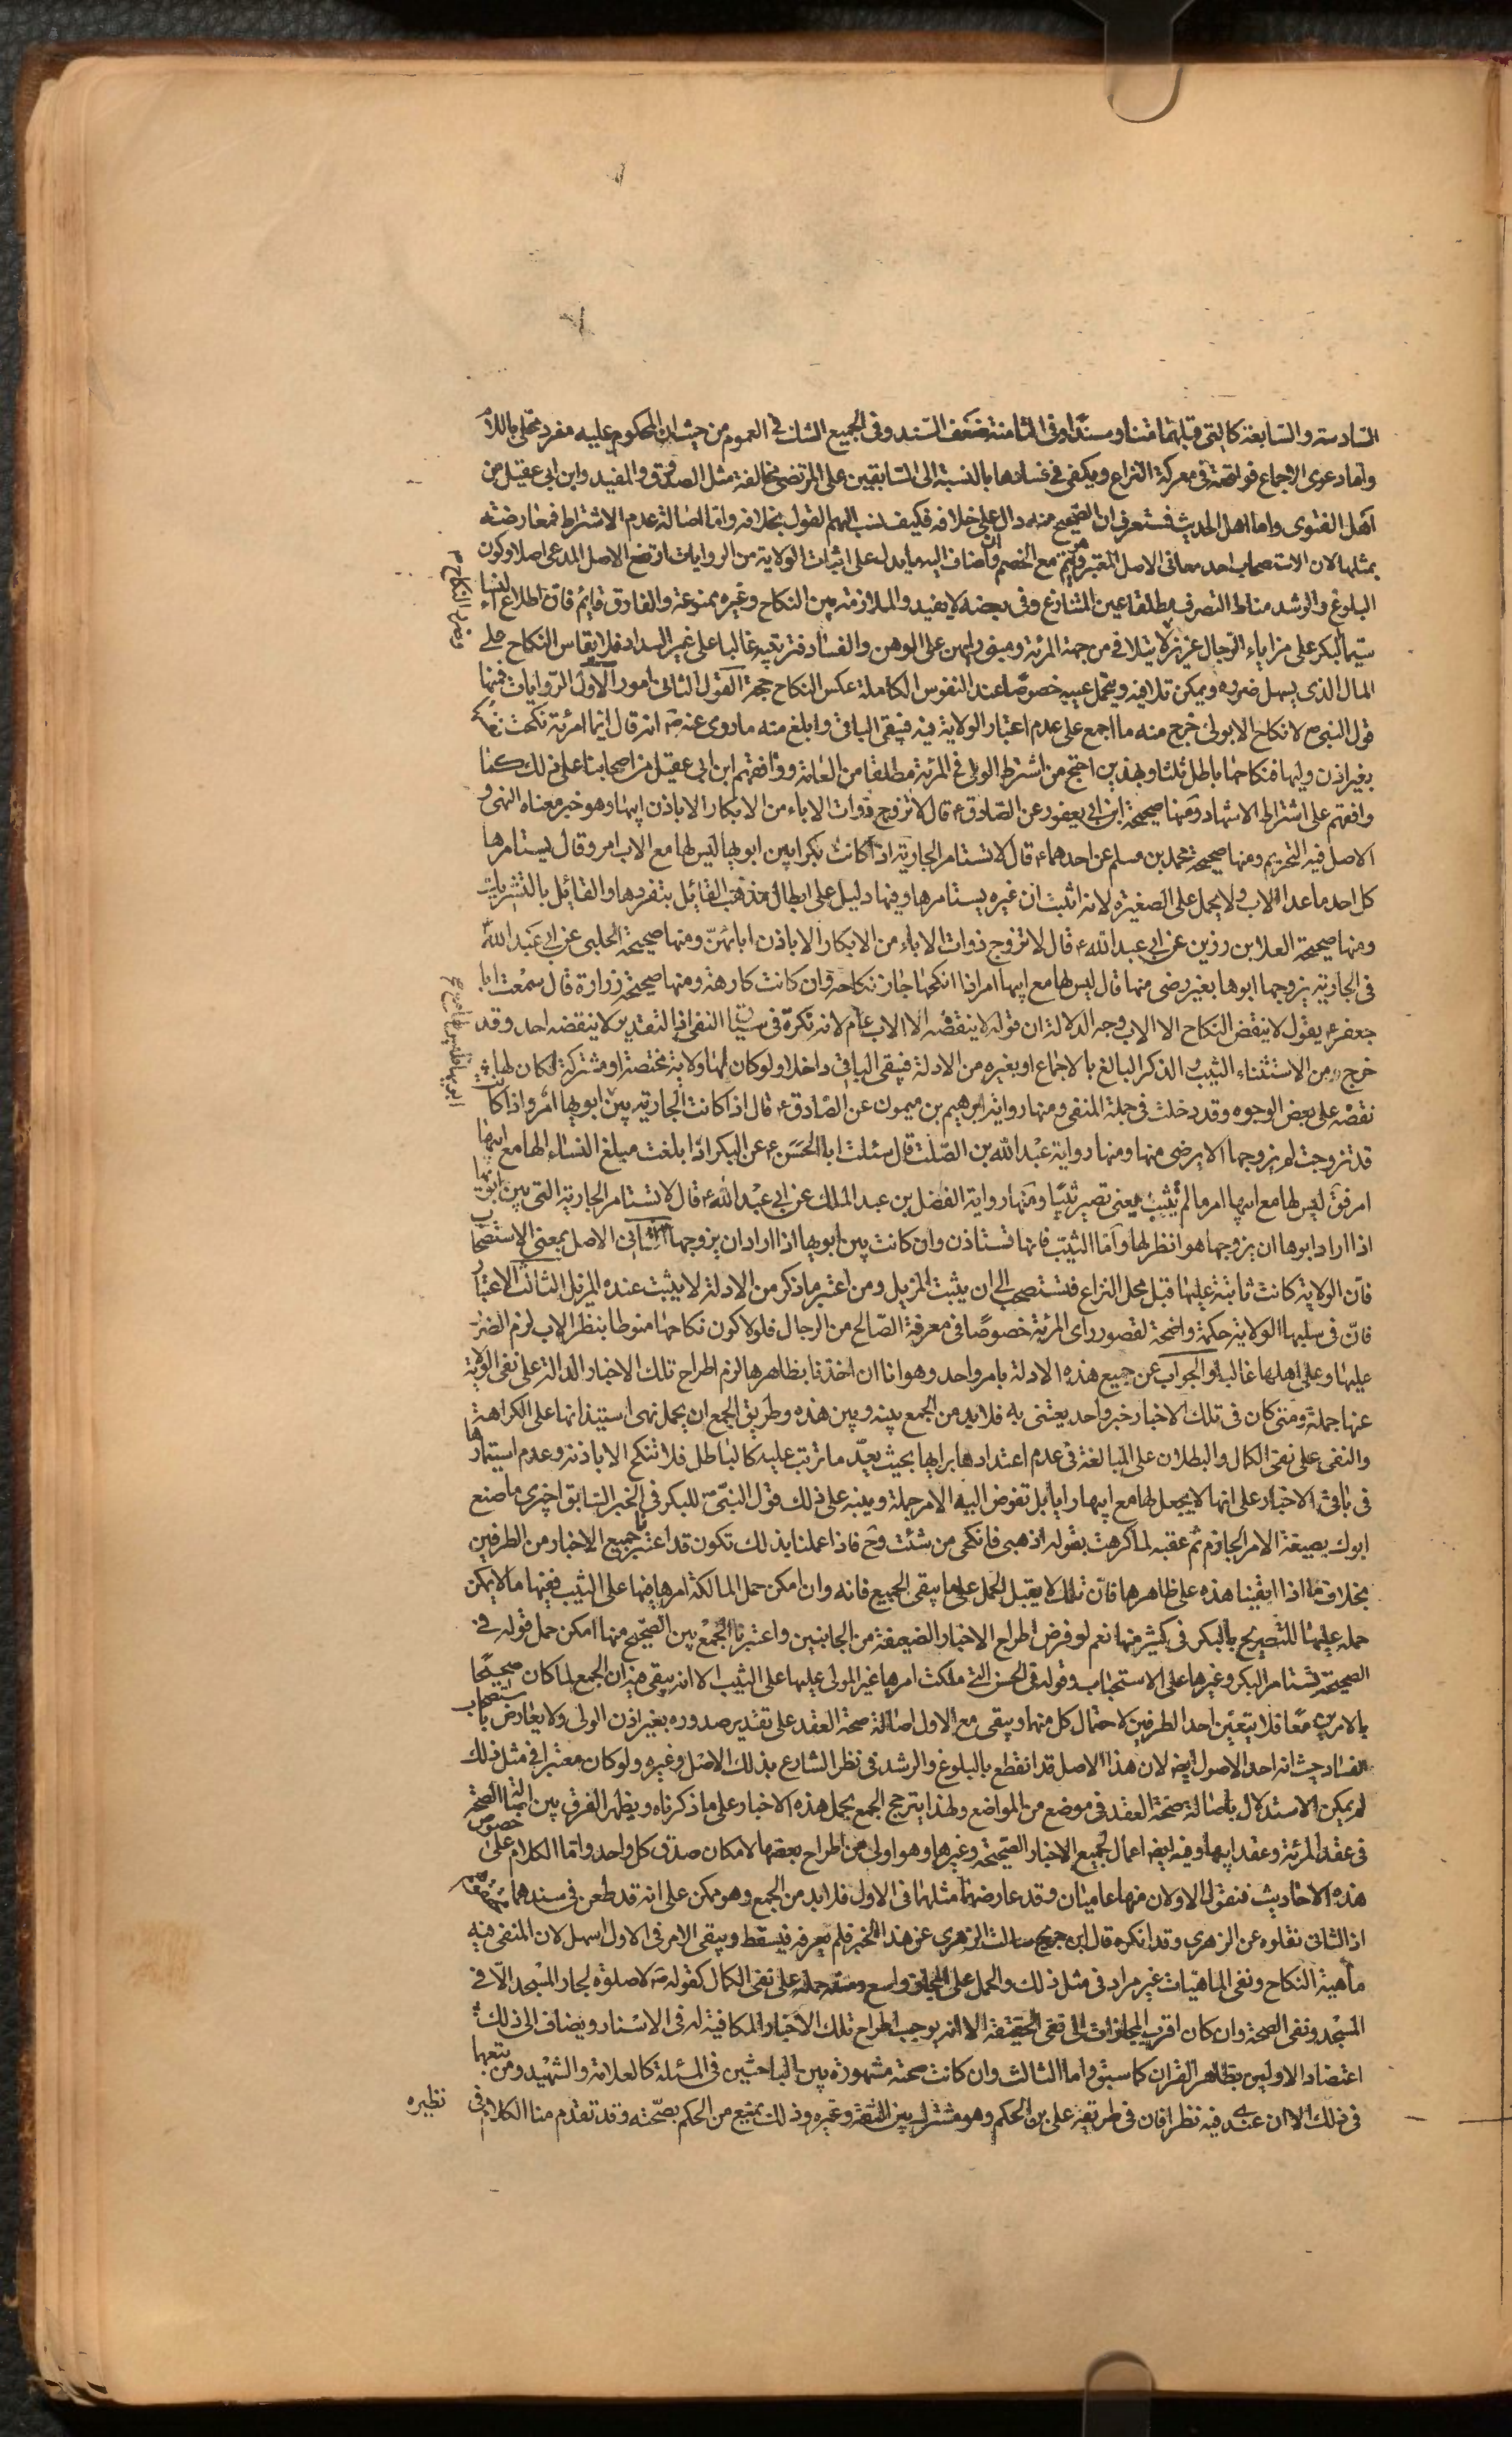 السادسة والسابعة كالتى قبلهما متنا وسندا وفى الثامنة ضعف السند وفى الجميع الشك فى العموم من حيث ان المحكوم عليه مفرد محلى باللام
واما دعوى الاجماع فواضحة فى معركة النزاع ويكفى فى فسادها بالنسبة الى السابقين على المرتضى مخالفة مثل الصدوق والمفيد وابن ابى عقيل من
اهل الفتوى واما اهل الحديث فستعرف ان الصحيح منه دال على خلافه فكيف ينسب اليهم القول بخلافه واما اصالة عدم الاشتراط فمعارضة
بمثلها لان الاستصحاب احد معانى الاصل المعتبر وهو قايم مع الخصم وان اضاف اليه ما يدل على اثبات الولاية من الروايات ارتفع الاصل المدعى اصلا وكون
البلوغ والرشد مناط التصرف مطلقا عين المتنازع وفى بعضه لا يفيد والملازمة بين النكاح وغيره ممنوعة والفارق قايم فان اطلاع النساء
سيما البكر على مزاياء الرجال عزيز لا يتلافى من جهة المرئة ومبنى رايهن على الوهن والفساد فتربيته غالبا على غير السداد فلا يقاس النكاح على
المال الذى يسهل ضرره ويمكن تلافيه ويتحمل عيبه خصوصا عند النفوس الكاملة عكس النكاح حجة القول الثانى امور الاول الروايات فمنها
قول النبى ص لا نكاح الا بولى خرج منه ما اجمع على عدم اعتبار الولاية فيه فيبقى الباقى وابلغ منه ما روى عنه ص انه قال ايما امرئة نكحت نفسها
بغير اذن وليها فنكاحها باطل ثلثا وبهذين احتج من اشترط الولى فى المرئة مطلقا من العامة ووافقهم ابن ابى عقيل من اصحابنا على ذلك كما
وافقهم على اشتراط الاشهاد ومنها صحيحة ابن ابى يعفور عن الصادق ع قال لا تزوج ذوات الاباء من الابكار الا باذن ابيها وهو خبر معناه النهى و
الاصل فيه التحريم ومنها صحيحة محمد بن مسلم عن احدهما ع قال لا تستامر الجارية اذا كانت بكرا بين ابويها ليس لها مع الاب امر وقال يستامرها
كل احد ما عدا الاب ولا يحمل على الصغيرة لانه اثبت ان غيره يستامرها وفيها دليل على ابطال مذهب القائل بتفردها والقائل بالتشريك
ومنها صحيحة العلا بن رزين عن ابى عبد الله ع قال لا تزوج ذوات الاباء من الابكار الا باذن ابائهن ومنها صحيحة الحلبى عن ابى عبد الله
فى الجارية يزوجها ابوها بغير رضى منها قال ليس لها مع ابيها امر اذا انكحها جاز نكاحه وان كانت كارهة ومنها صحيحة زرارة قال سمعت ابا
جعفر ع يقول لا ينقض النكاح الا الاب وجه الدلالة ان قوله لا ينقضه الا الاب عام لانه نكرة فى سياق النفى اذ التقدير لا ينقضه احد وقد
خرج من الاستثناء الثيب والذكر البالغ بالاجماع او بغيره من الادلة فيبقى الباقى داخلا ولو كان لها ولاية مختصة او مشتركة لكان لها
نقضه على بعض الوجوه وقد دخلت فى جملة المنفى ومنها رواية ابرهيم بن ميمون عن الصادق ع قال اذا كانت الجارية بين ابويها امر واذا كانت
قد تزوجت لم يزوجها الا برضى منها ومنها رواية عبد الله بن الصلت قال سئلت ابا الحسن ع عن البكر اذا بلغت مبلغ النساء الها مع ابيها
امر فق ليس لها مع ابيها امر ما لم تثيب يعنى تصير ثيبا ومنها رواية الفضل بن عبد الملك عن ابى عبد الله ع قال لا تستامر الجارية التى بين ابويها
اذا اراد ابوها ان يزوجها هو انظر لها واما الثيب فانها تستاذن وان كانت بين ابويها اذا اراد ان يزوجها الثانى الاصل بمعنى الاستصحاب
فان الولاية كانت ثابتة عليها قبل محل النزاع فتستصحب الى ان يثبت المزيل ومن اعتبر ما ذكر من الادلة لا يثبت عنده المزيل الثالث الاعتبار
فان فى سلبها الولاية حكمة واضحة لقصور راى المرئة خصوصا فى معرفة الصالح من الرجال فلولا كون نكاحها منوطا بنظر الاب لزم الضرر
عليها وعلى اهلها غالبا والجواب عن جميع هذه الادلة بامر واحد وهو انا ان اخذنا بظاهرها لزم اطراح تلك الاخبار الدالة على نفى الولاية
عنها جملة ومتى كان فى تلك الاخبار خبر واحد يعتنى به فلا بد من الجمع بينه وبين هذه وطريق الجمع ان يحمل نهى استيذانها على الكراهة
والنفى على نفى الكمال والبطلان على المبالغة فى عدم اعتدادها برايها بحيث يعد ما ترتب عليه كالباطل فلا تنكح الا باذنه وعدم استيمارها
فى باقى الاخبار على انها لا يجعل لها مع ابيها رايا بل تفوض اليه الامر جملة وينبه على ذلك قول النبى ص للبكر فى الخبر السابق اجيزى ما صنع
ابوك بصيغة الامر الجازم ثم عقبه لما كرهت بقوله اذهبى فانكحى من شئت وح فاذا عملنا بذلك تكون قد اعتبرنا جميع الاخبار من الطرفين
بخلاف ما اذا ابقينا هذه على ظاهرها فان تلك لا يقبل الحمل على ما يبقى الجميع فانه وان امكن حمل المالكة امرها منها على الثيب ففيها ما لا يمكن
حمله عليها للتصريح بالبكر فى كثير منها نعم لو فرض اطراح الاخبار الضعيفة من الجانبين واعتبرنا الجمع بين الصحيح منها امكن حمل قوله فى
الصحيحة تستامر البكر وغيرها على الاستحباب وقوله فى الحسن التى ملكت امرها غير المولى عليها على الثيب الا انه يبقى ميزان الجمع لما كان صحيحا
بالامرين معا فلا يتعين احد الطرفين لاحتمال كل منهما ويبقى مع الاول اصالة صحة العقد على تقدير صدوره بغير اذن الولى ولا يعارض باستصحاب
الفساد حيث انه احد الاصول ايض لان هذا الاصل قد انقطع بالبلوغ والرشد فى نظر الشارع بذلك الاصل وغيره ولو كان معتبرا فى مثل ذلك
لم يمكن الاستدلال باصالة صحة العقد فى موضع من المواضع ولهذا يترجح الجمع بحمل هذه الاخبار على ما ذكرناه ويظهر الفرق بين اثبات الصحة
فى عقد المرئة وعقد ابيها وفيه ايض اعمال لجميع الاخبار الصحيحة وغيرها وهو اولى من اطراح بعضها لامكان صدق كل واحد واما الكلام على خصوص
هذه الاحاديث فنقول الاولان منها عاميان وقد عارضهما مثلهما فى الاول فلا بد من الجمع وهو ممكن على انه قد طعن فى سندهما
اذ الثانى نقلوه عن الزهرى وقد انكره قال ابن جريج سالت الزهرى عن هذا الخبر فلم يعرفه فيسقط ويبقى الامر فى الاول اسهل لان المنفى فيه
ماهية النكاح ونفى الماهيات غير مراد فى مثل ذلك والحمل على المجاز واسع ومنه حمله على نفى الكمال كقوله ص لا صلوة لجار المسجد الا فى
المسجد ونفى الصحة وان كان اقرب المجازات الى نفى الحقيقة الا انه يوجب اطراح تلك الاخبار المكافية له فى الاسناد ويضاف الى ذلك
اعتضاد الاولين بظاهر القران كما سبق واما الثالث وان كانت صحته مشهورة بين الباحثين فى المسئلة كالعلامة والشهيد ومن تبعهما
فى ذلك الا ان عندى فيه نظرا فان فى طريقه على بن الحكم وهو مشترك بين الثقة وغيره وذلك يمنع من الحكم بصحته وقد تقدم منا الكلام فى
نظيره